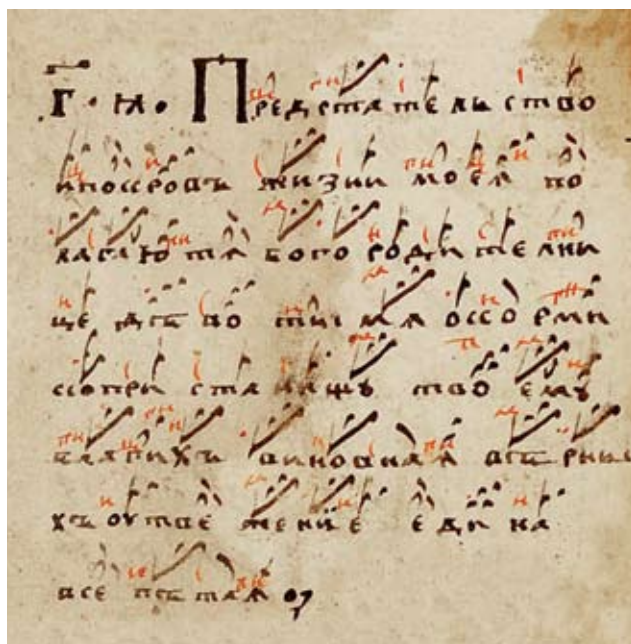 Предстательство
и покровъ жизни моеѧ по
лагаю тѧ богородителни
це дѣво ты мѧ окорми
ко пристанищу твоему
благихъ виновнаѧ вѣрны
хъ оутвежение едина
всепѣтаѧ